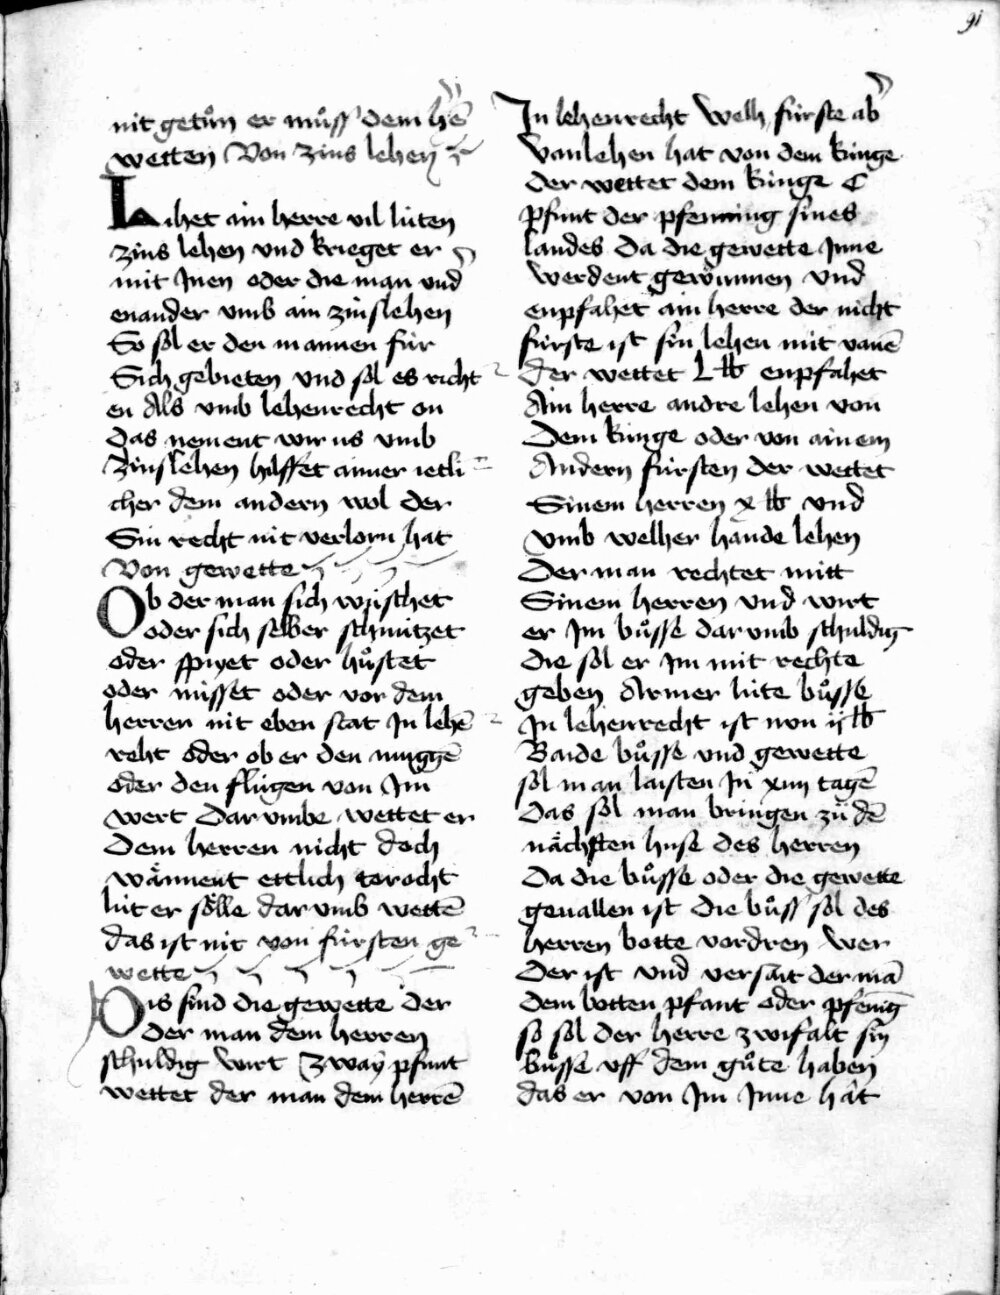 91
nit getůn er můss dem h'ē
wetten Von zins lehen
Lihet ain herre vil lüten
zins lehen vnd krieget er
mit Inen oder die man vnd
enander vmb ain zinslehen
So sol er den mannen für
Sich gebieten vnd sol es richt
en Als vmb lehenrecht on
das nement wir us vmb
zinslehen hilffet ainer ietli
cher dem andern wol der
Sin recht nit verlorn hat
Von gewette
Ob der man sich wüschet
oder sich selber schnützet
oder spiyet oder hůstet
oder nisset oder vor dem
herren nit eben stat In lehē
reht oder ob er den muggē
oder den flügen von Im
wert Dar vmbe wettet er
Dem herren nicht doch
wännent ettlich torocht
lüt er sölle dar vmb wettē
das ist nit von fürsten ge
wette
Dis sind die gewette der
der man dem herren
schuldig wirt Zway pfunt
wettet der man dem herrē
In lehenrecht Welh fürste ab'
Vanlehen hat von dem künge
der wettet dem künge C
pfunt der pfenning sines
landes Da die gewette Inne
werdent gewunnen vnd
enpfahet ain herre der nicht
fürste ist sin lehen mit vanē
der wettet L lb enpfahet
Ain herre andre lehen von
Dem künge oder von ainem
Andern fürsten der wettet
Sinem herren x lb vnd
vmb welher hande lehen
Der man rechtet mitt
Sinem herren vnd wirt
er Im bůsse dar vmb schuldig
die sol er Im mit rechte
geben Armer lüte bůsse
In lehenrecht ist non ij lb
Baide bůsse vnd gewette
sol man laisten In xiiij tagē
Das sol man bringen zů dē
nächsten huse des herren
Da die bůsse oder die gewette
geuallen ist die bůss sol des
herren botte vordren wer
Der ist vnd versait der mā
dem botten pfant oder pfenīg
so sol der herre zwifalt sin
bůsse vff dem gůte haben
das er von Im Inne hāt